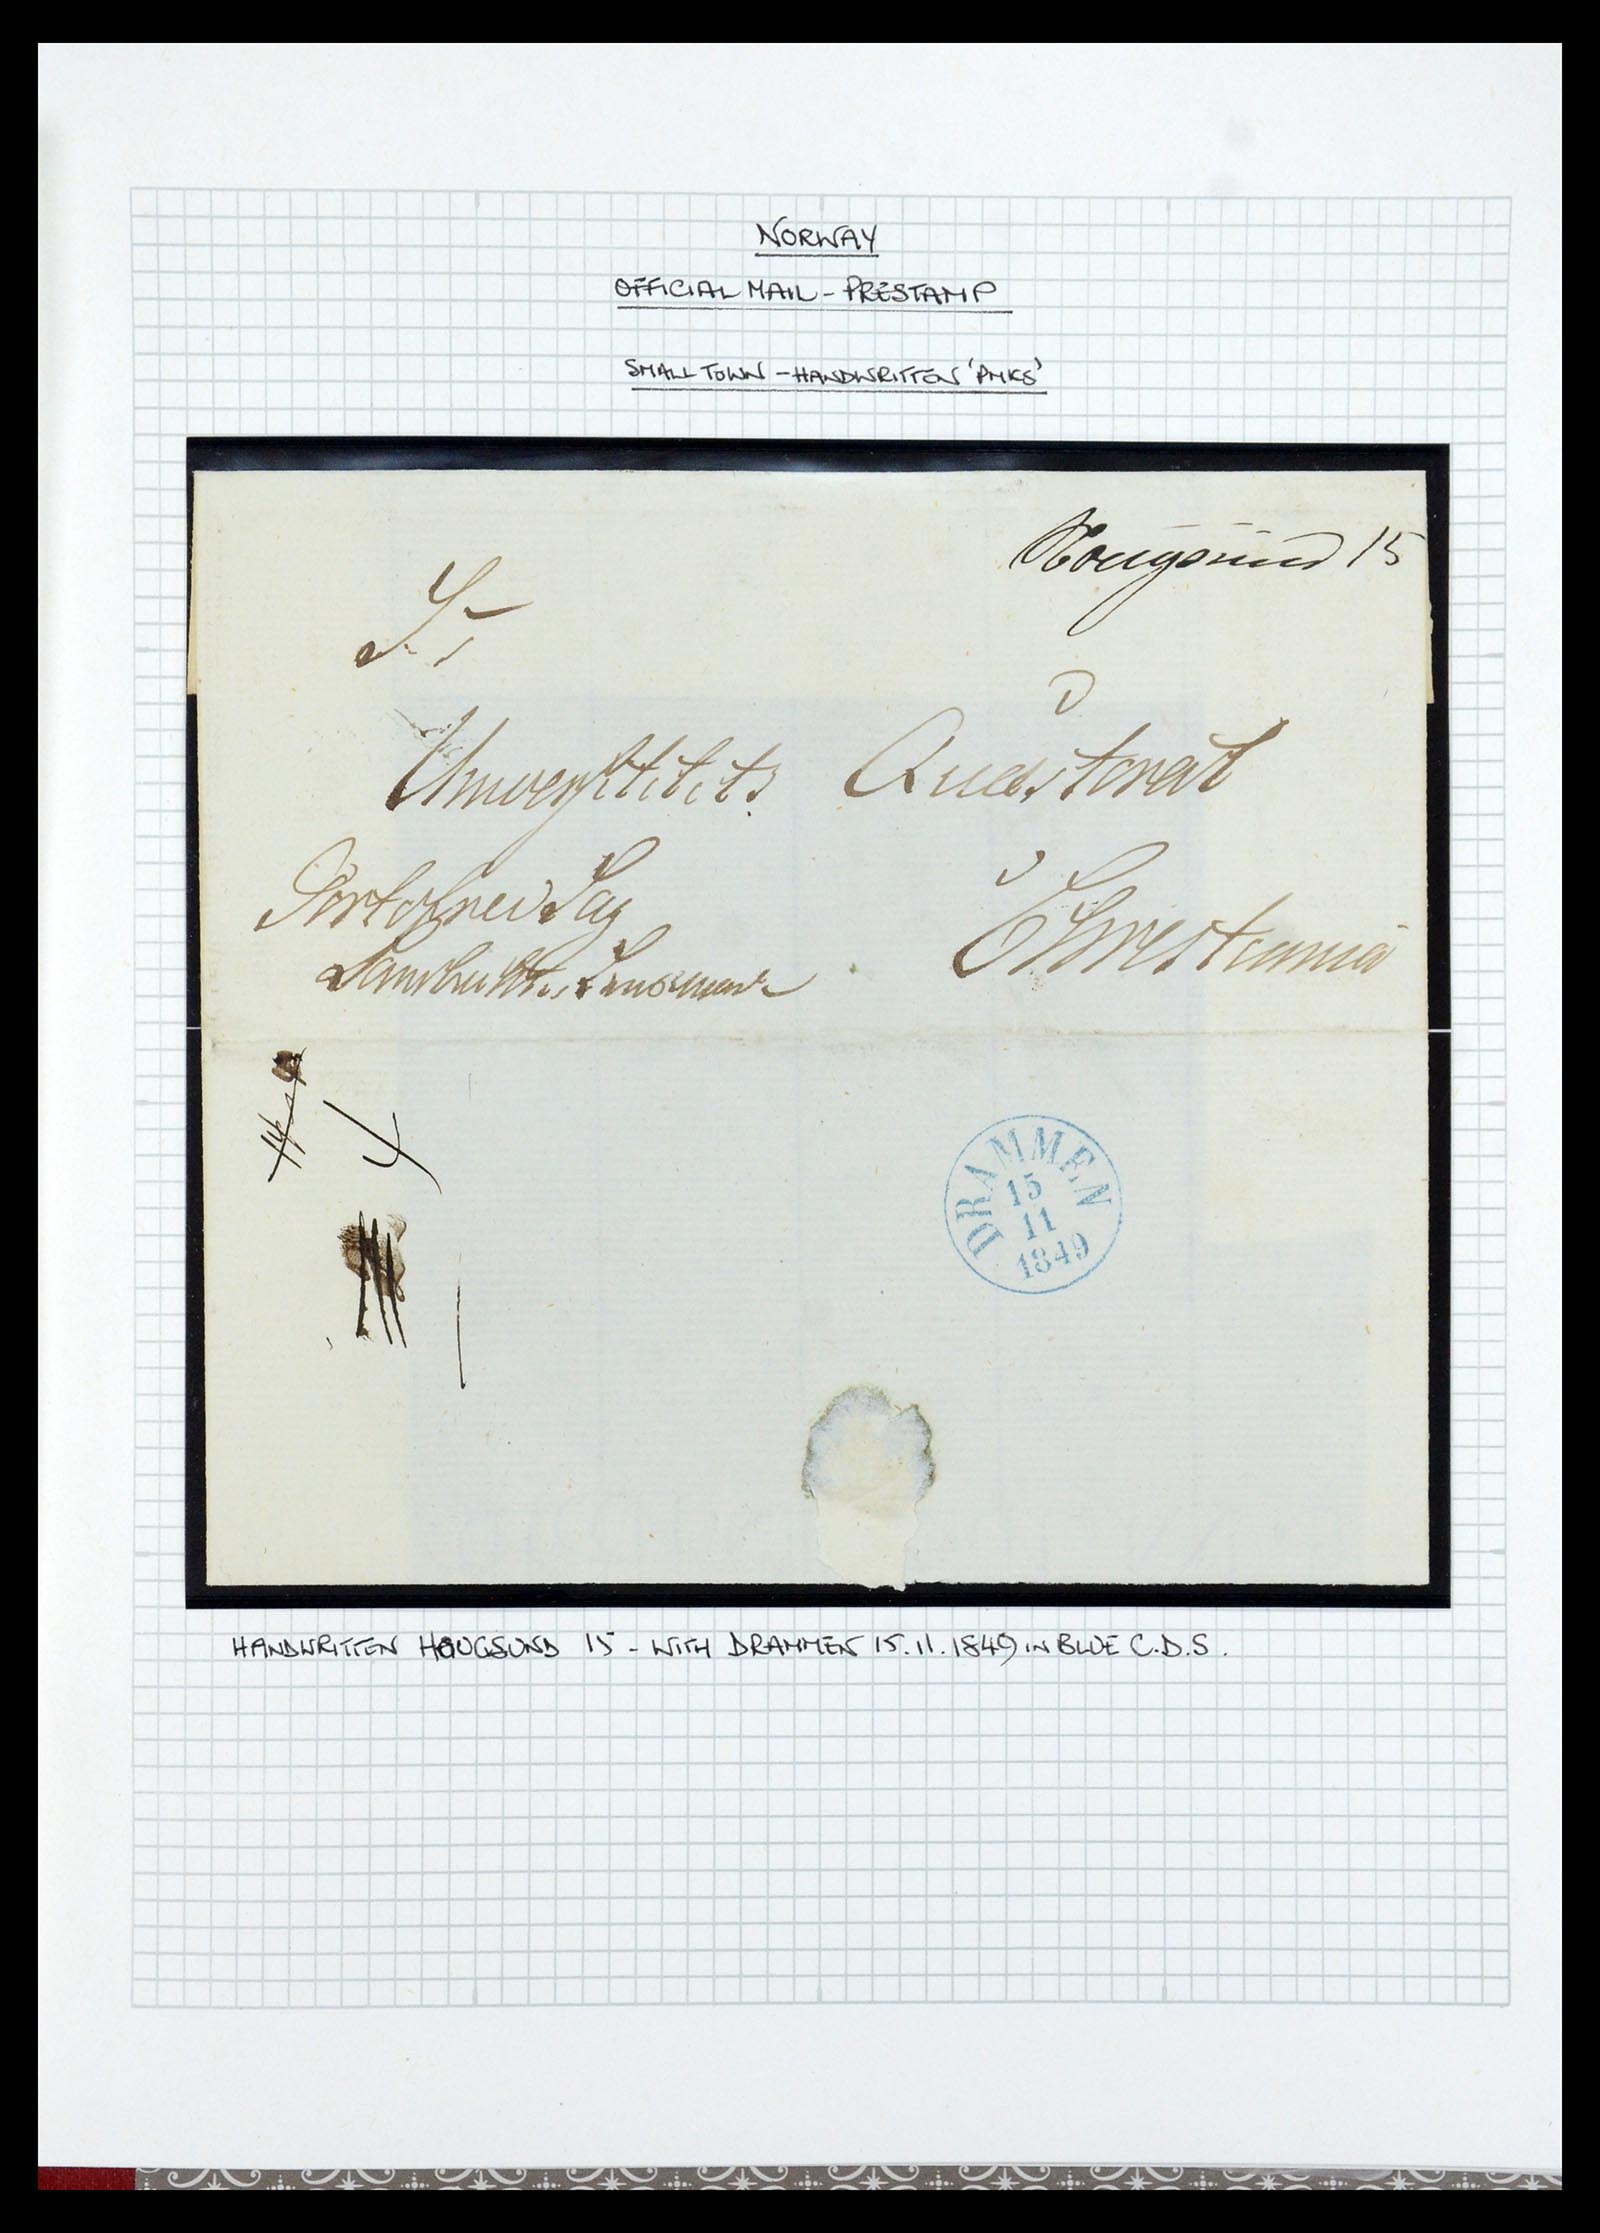 NORWAY
OFFICIAL MAIL - PRESTAMP
SMALL TOWN - HANDWRITTEN 'PMKS'
Hougsund 15
Universitets Quæstorat
Christiania
Portofrei Sag
4
DRAMMEN
15
11
1849
HANDWRITTEN HOUGSUND 15 - WITH DRAMMEN 15.11.1849 IN BLUE C.D.S.